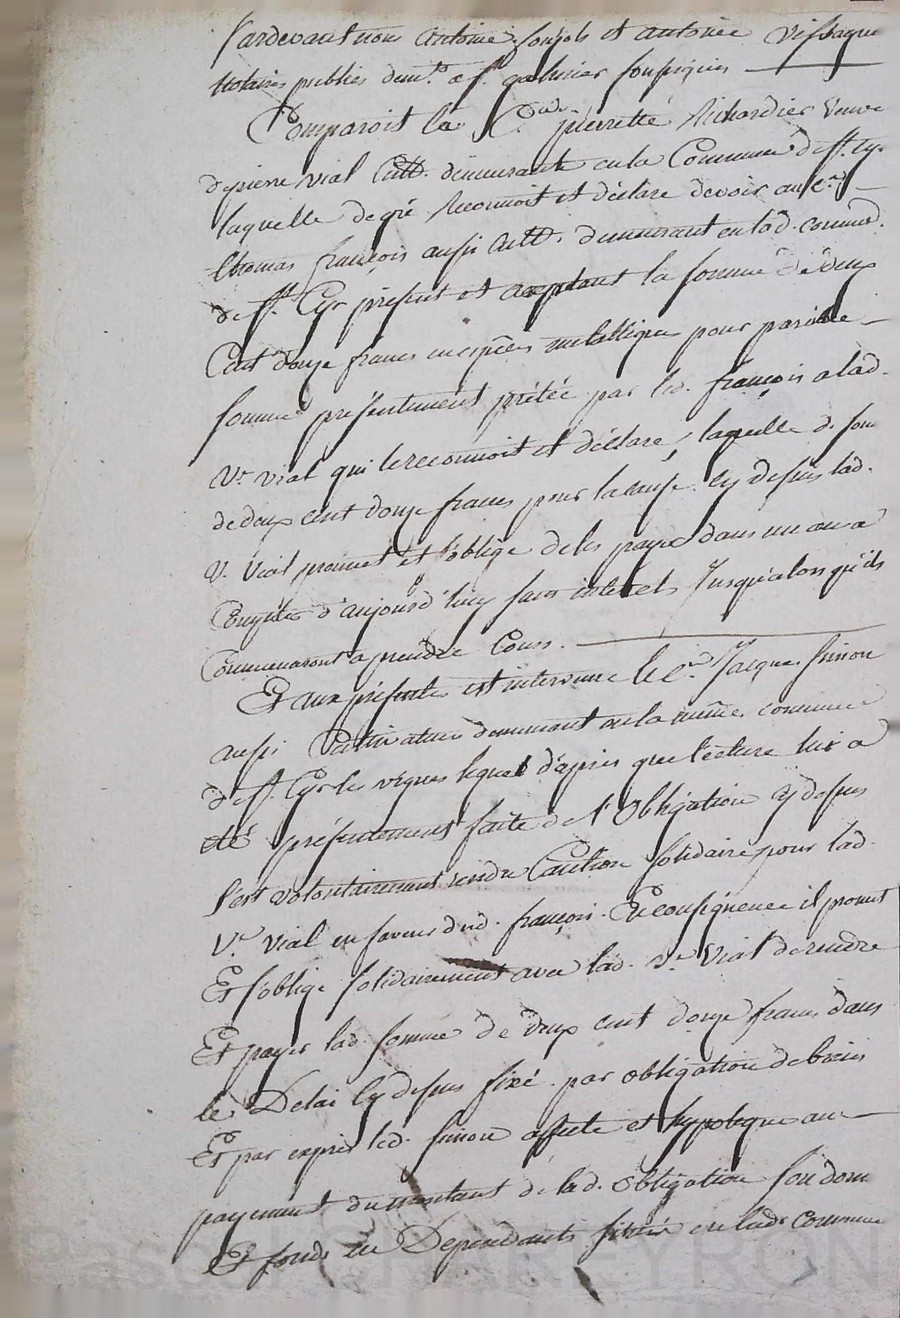 Pardevant nous Antoine Soujols et Antoine Vissaque
Notaires publics demt. a St. galmier soussignés
Comparoit la Cne. pierrette Richardier Veuve
de pierre vial Cultr. demeurante en la Commune de St. Cyr
laquelle de gré Reconnoit et déclare devoir au Cen.
thomas françois aussi Cultr. demeurant en lad. commne.
de St. Cyr présent et acceptant la somme de deux
Cent douze francs en espèces metallique pour pareille
somme présentement prétée par led. françois a lad.
Ve. vial qui le reconnoit et déclare, laquelle d. somme
de deux cent douze francs pour la cause cy dessus lad.
V. Vial promet et s'oblige de les payer dans un an a
Compter d'aujourd'huy sans interet Jusqu'alors qu'ils
Commenceront a prendre Cours.
Et aux présentes est intervenu le Cen. Jacque Simon
aussi Cultivateur demeurant en la même commune
de St. Cyr les vignes lequel d'après que lecture lui a
été présentement faite de l'Obligation cy dessus
s'est volontairement rendu Caution solidaire pour lad.
Ve. Vial en faveur dud. françois. En conséquence il promet
Et s'oblige solidairement avec lad. Ve. Vial de rendre
Et payer lad. somme de deux cent douze francs dans
le Delai Cy dessus fixé par obligation de biens
Et par exprès led. Simon affecte et hypoteque au
payement du montant de lad. obligation son dom
Et fonds en Dependants situés en lade. commune
Pascal CHAREYRON